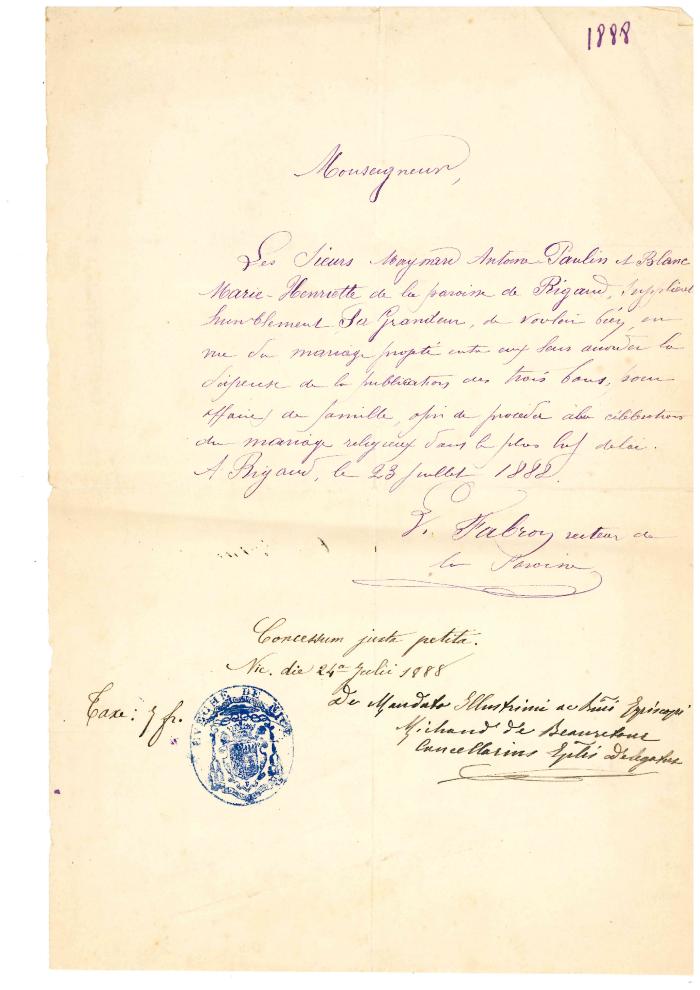 1888
Monseigneur,
Les Sieurs Maynard Antoine Paulin et Blanc
Marie-Henriette de la paroisse de Rigaud, supplient
humblement Sa Grandeur, de vouloir bien, en
vue du mariage projeté entre eux leur accorder la
dispense de la publication des trois bans, pour
affaires de famille, afin de procéder à la célébration
du mariage religieux dans le plus bref délai.
A Rigaud, le 23 juillet 1888.
Fabron recteur de
la Paroisse
Concessum juxta petita.
Nic. die 24a Julii 1888
De Mandato Illustrimi ac Rmi Episcopi
Taxe: 7 fr.
ÉVÊCHÉ DE NICE
Michaud de Beauretour
Cancellarius Eplis Delegatus